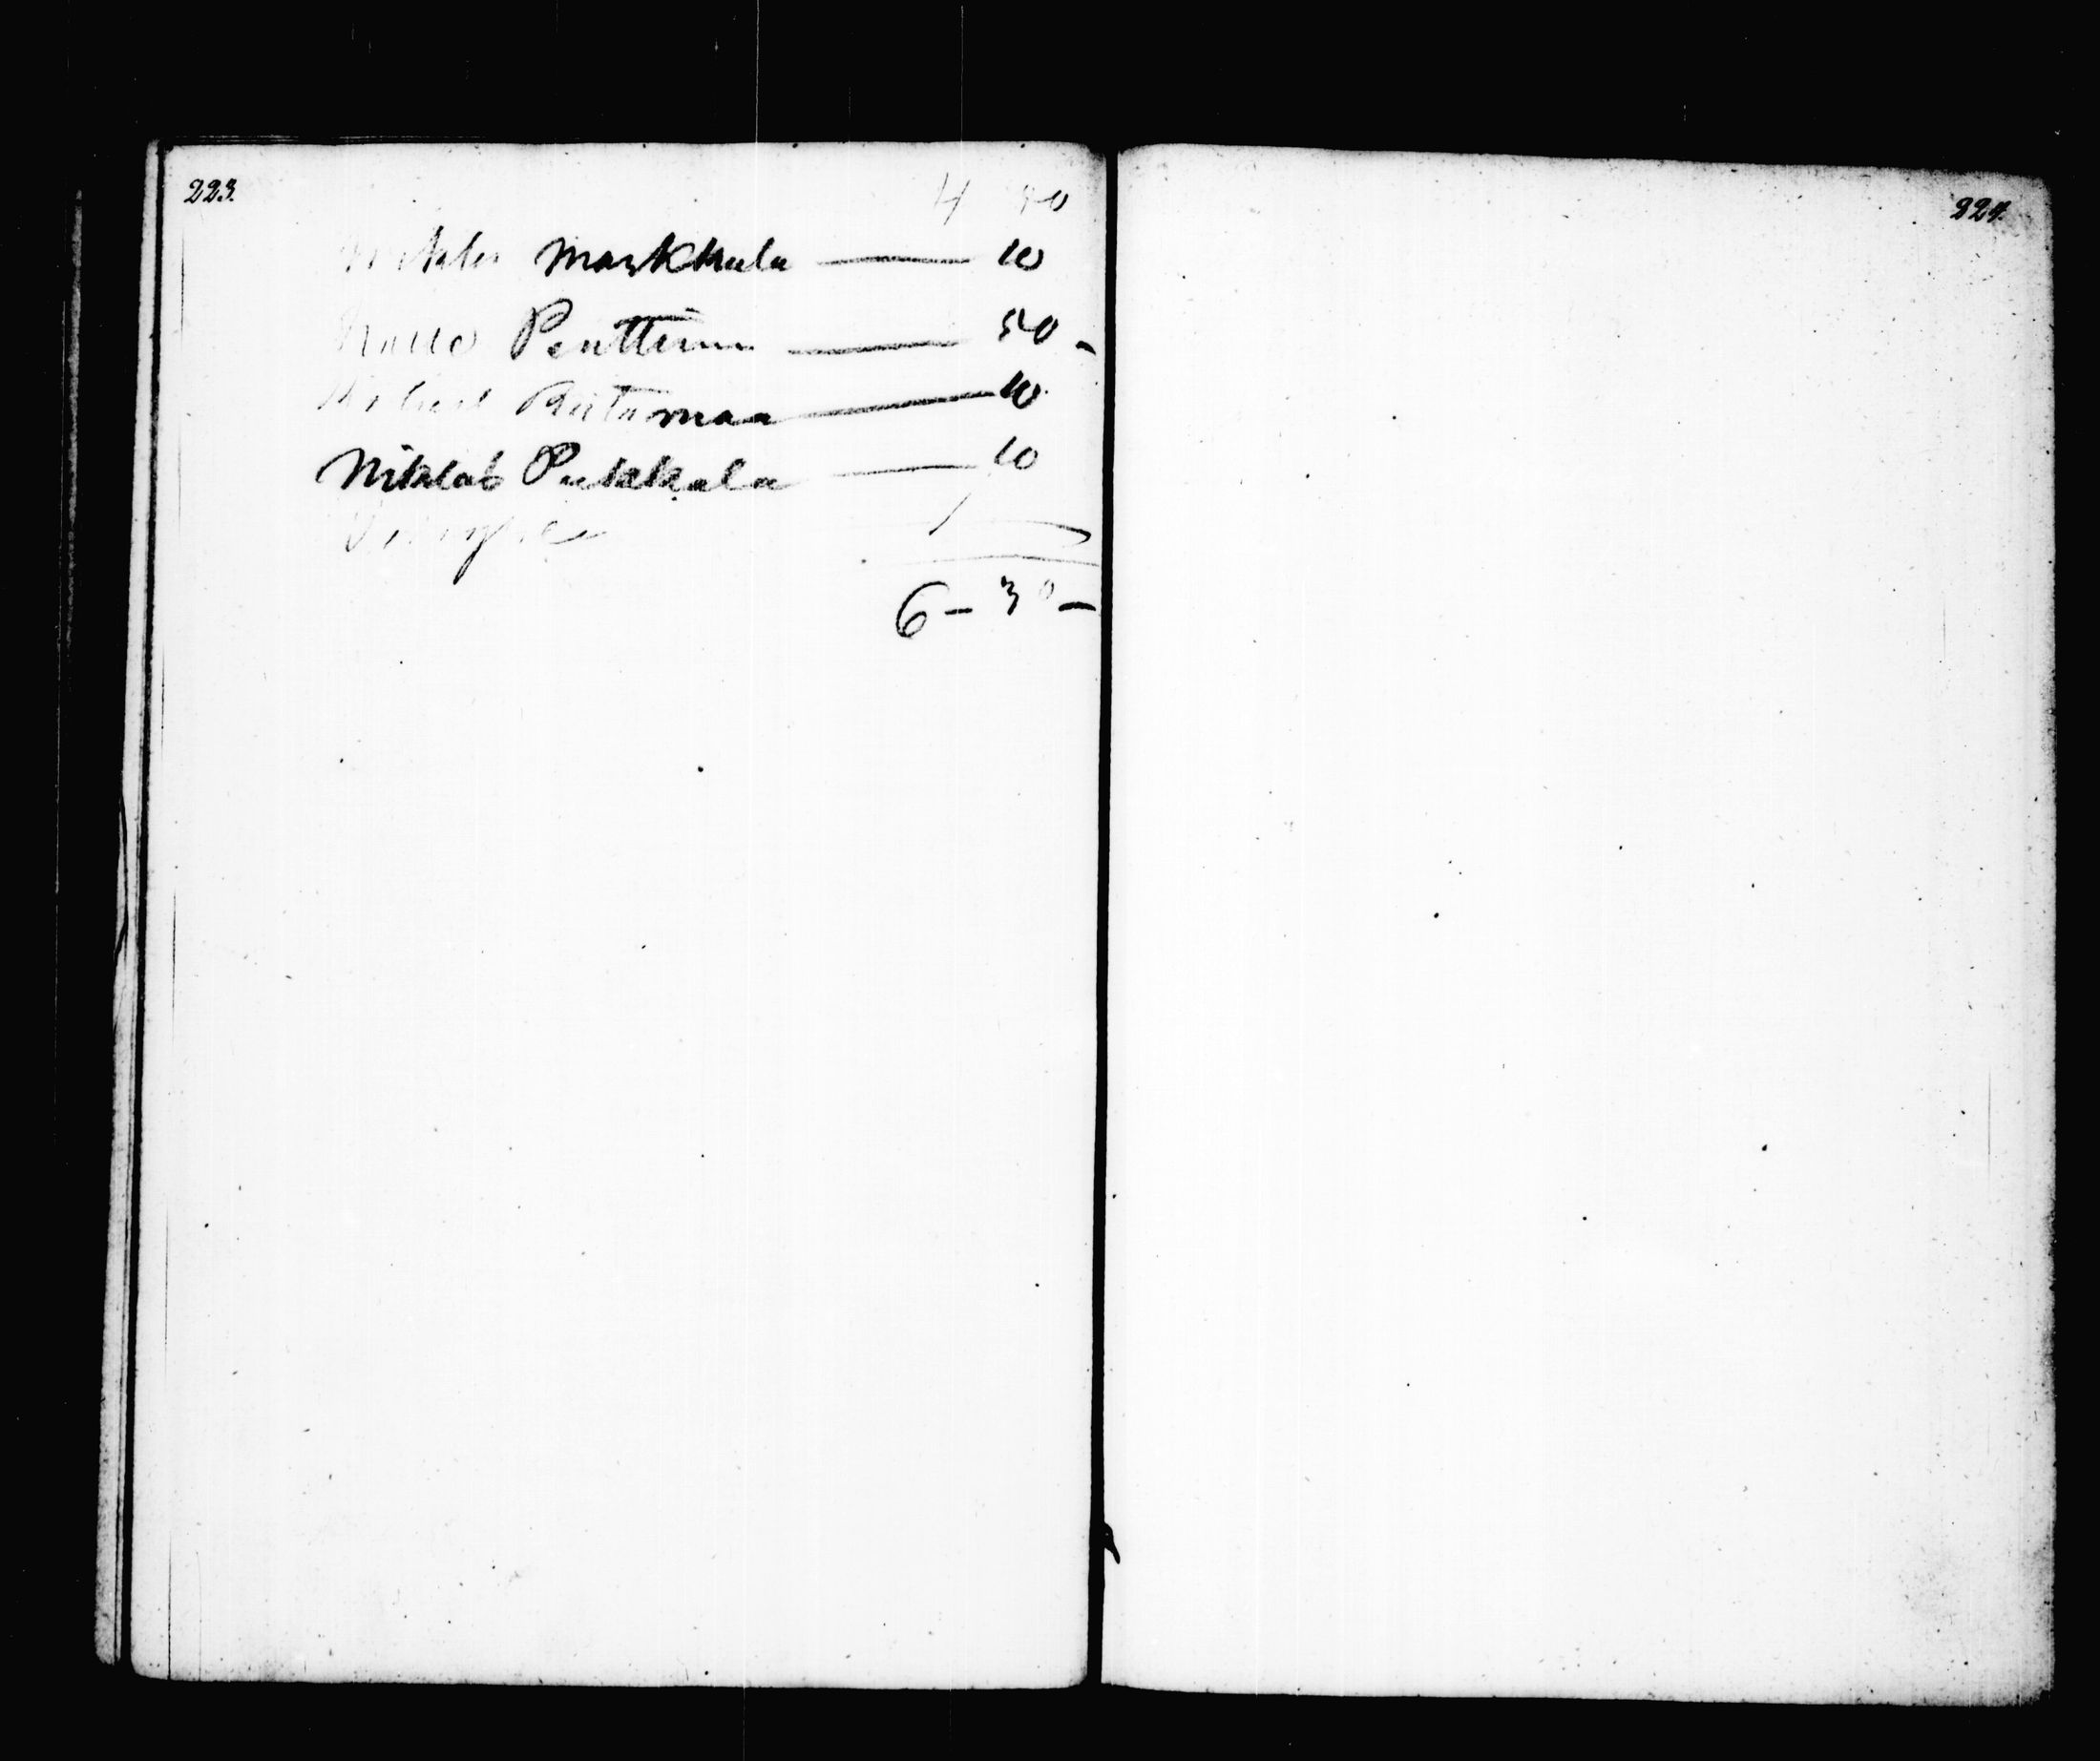 223.
4 50
Niklas Markkula — 10
Kalle Penttinen — 50 -
Rintamaa — 10
Niklas Pukkala — 10
1 —
6 - 30 -
224.